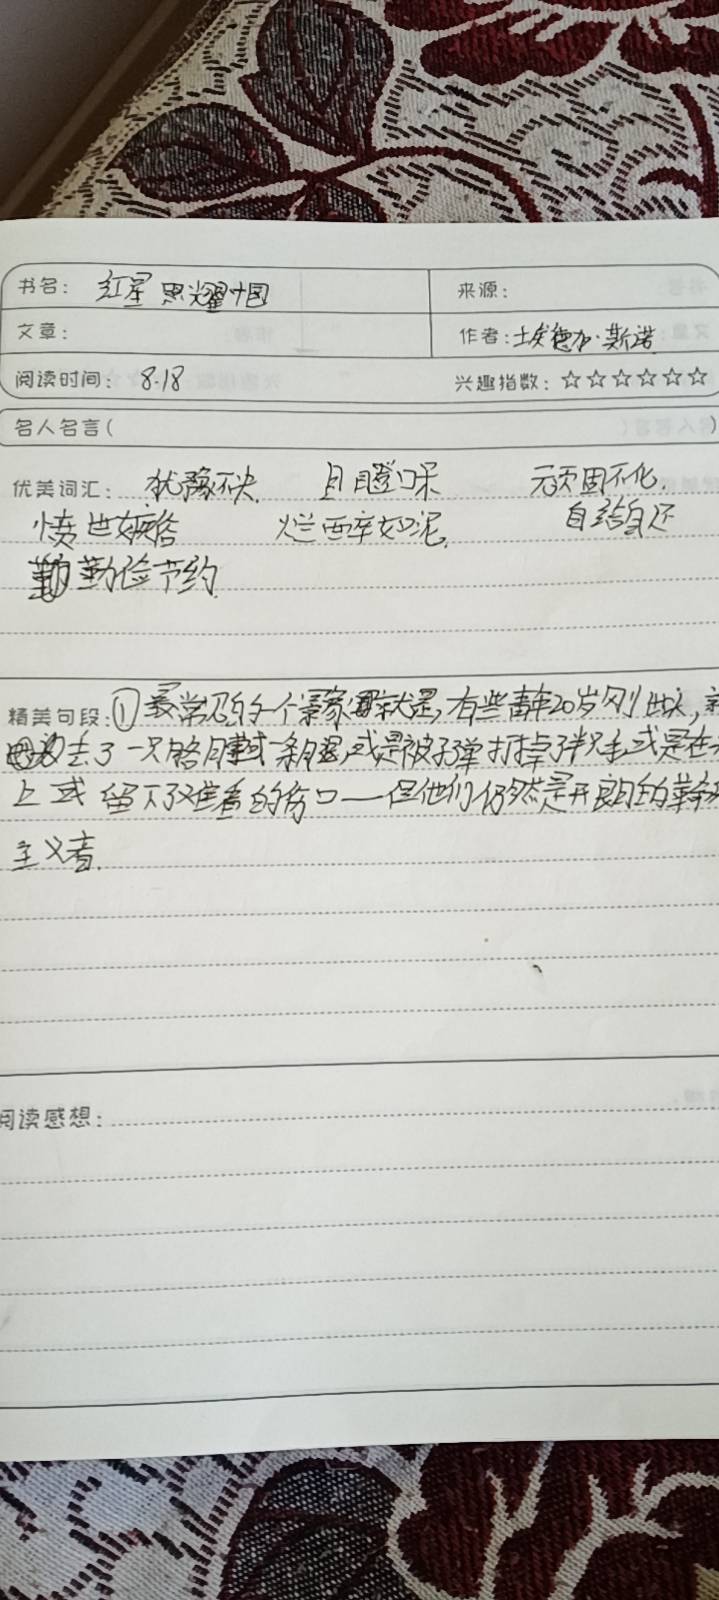 书名: 红星照耀中国 来源:
文章: 作者: 埃德加·斯诺
阅读时间: 8.18 兴趣指数: ☆☆☆☆☆☆
名人名言( )
优美词汇: 犹豫不决 目瞪口呆 顽固不化.
愤世嫉俗 烂醉如泥. 自给自足
勤俭节约.
精美句段: ①最常见的一个景象就是,有些青年20岁刚出头,
去了一只胳膊或一条腿,或是被子弹打掉了半只手,或是在
上或留下了难看的伤口——但他们仍然是开朗的
主义者.
阅读感想: